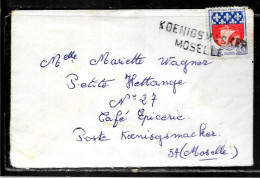 KOENIGSM
MOSELLE
Melle Mariette Wagner
Petite Hettange
N° 27
Café Epicerie
Poste Kœnigsmacker
54 (Moselle)